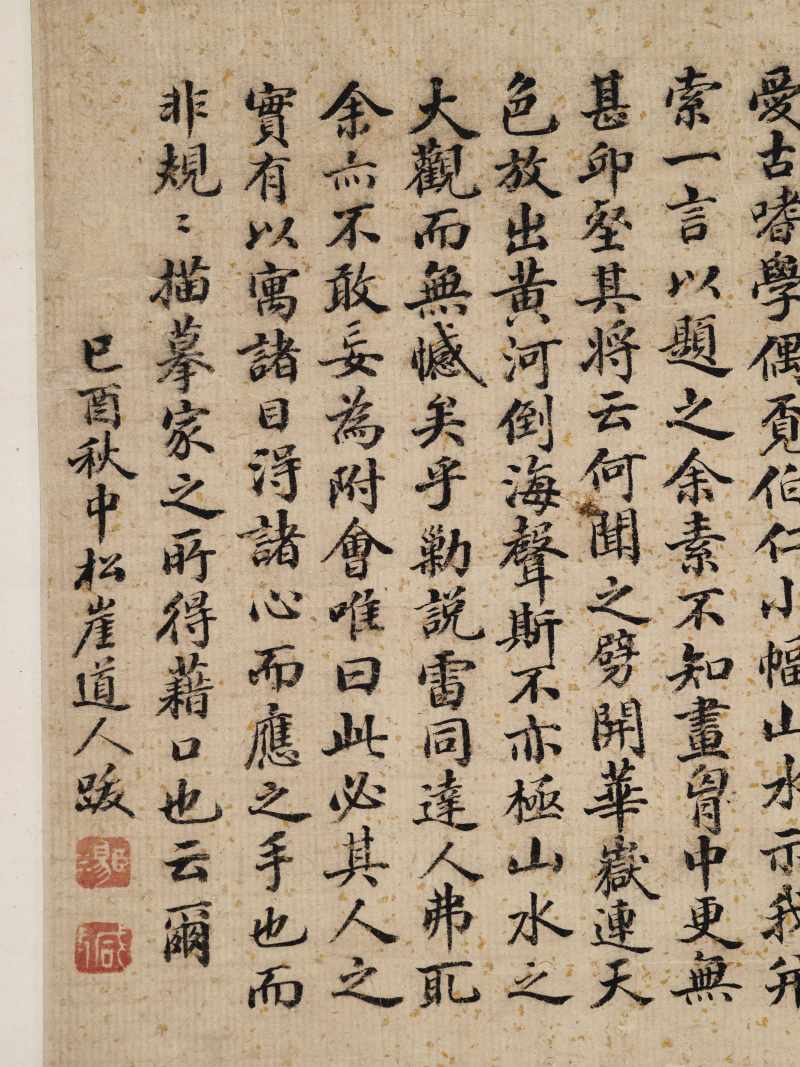 愛古嗜學偶覓伯仁小幅山水示我并
索一言以題之余素不知畫胷中更無
甚卯壑其将云何聞之劈開華嶽連天
色放出黄河倒海聲斯不亦極山水之
大觀而無憾矣乎勦説雷同達人弗取
余亦不敢妄為附會唯曰此必其人之
實有以寓諸目淂諸心而應之手也而
非規〻描摹家之所得藉口也云爾
己酉秋中松崖道人跋